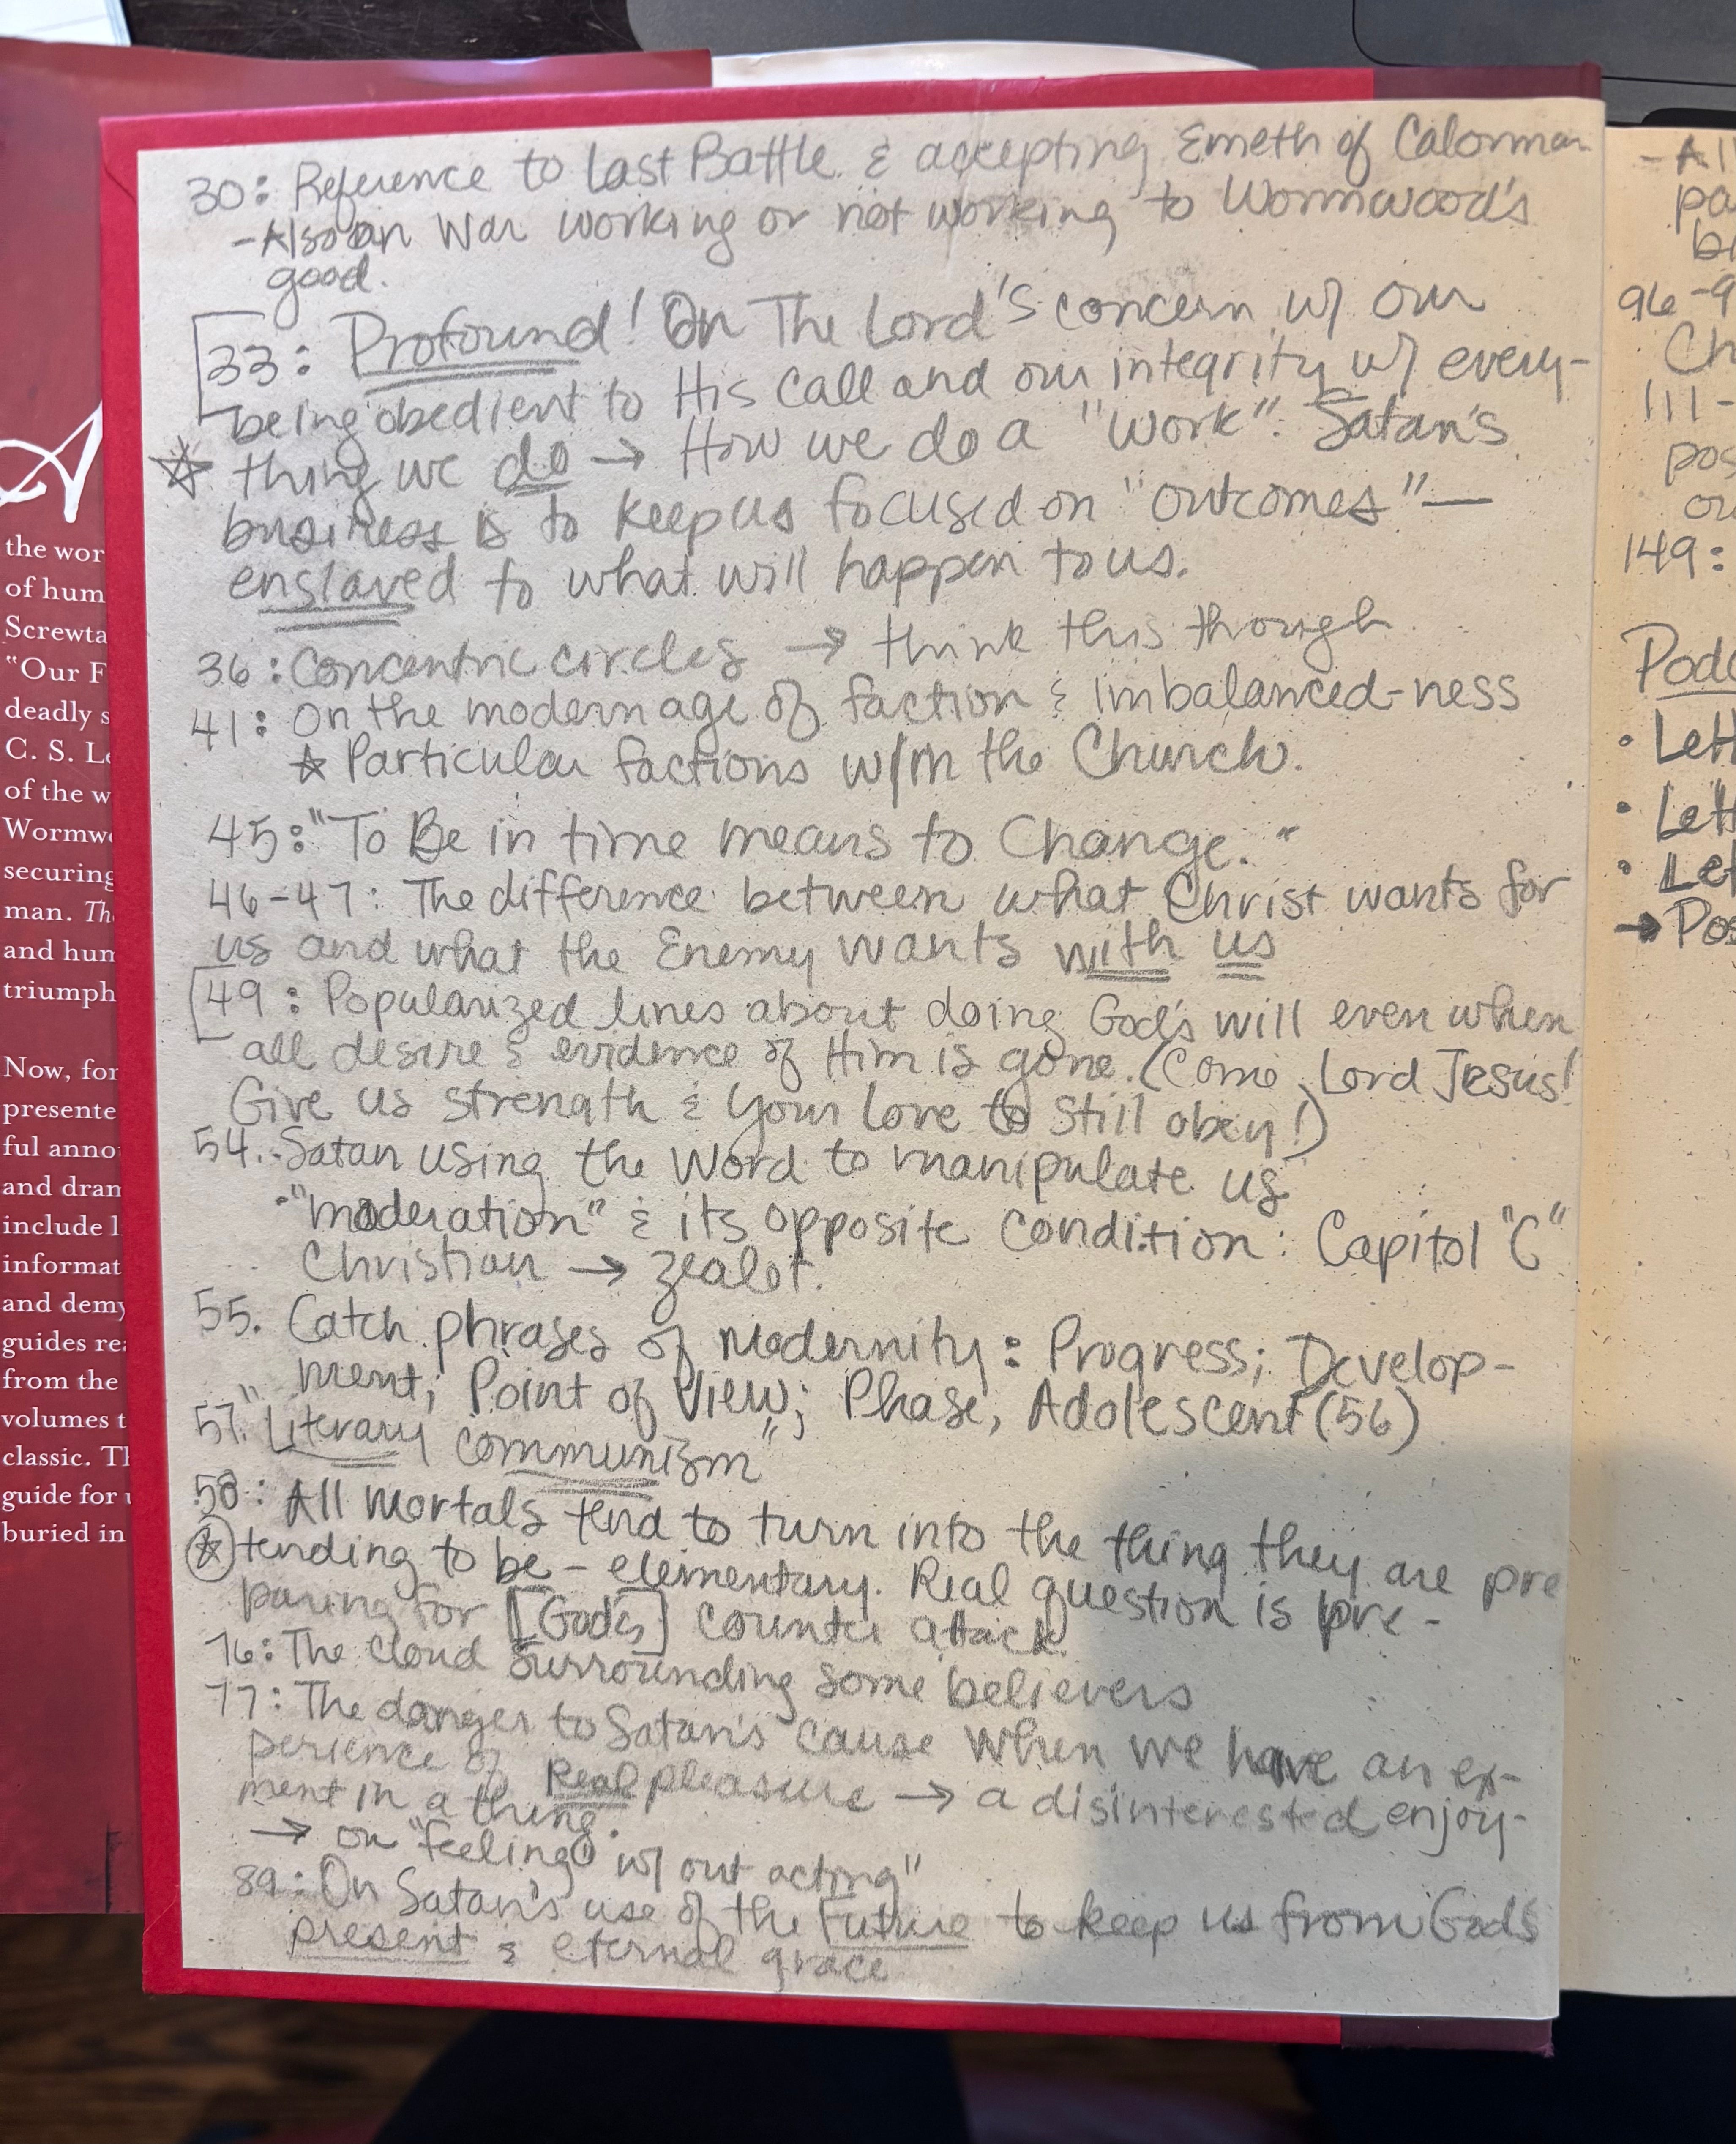 30: Reference to Last Battle & accepting Emeth of Calormen
-Also on War working or not working to Wormwood's
good.
33: Profound! On The Lord's concern w/ our
being obedient to His call and our integrity w/ every-
thing we do → How we do a "work". Satan's
business is to keep us focused on "outcomes"—
enslaved to what will happen to us.
36: Concentric circles → think this through
41: On the modern age of faction & imbalanced-ness
☆ Particular factions w/in the Church.
45: "To Be in time means to Change."
46-47: The difference between what Christ wants for
us and what the Enemy wants with us
49: Popularized lines about doing God's will even when
all desire & evidence of Him is gone. (Come Lord Jesus!
Give us strength & Your Love to still obey!)
54. -Satan using the Word to manipulate us
-"moderation" & its opposite condition: Capitol "C"
Christian → zealot.
55. Catch phrases of Modernity: Progress; Develop-
ment; Point of View; Phase, Adolescent (56)
57. "Literary communism"
58: All Mortals tend to turn into the thing they are pre
☆ tending to be - elementary. Real question is pre-
paring for [God's] counter attack.
76: The cloud surrounding some believers
77: The danger to Satan's cause when we have an ex-
perience of Real pleasure → a disinterested enjoy-
ment in a thing.
→ on "feeling w/out acting"
89: On Satan's use of the Future to keep us from God's
present & eternal grace
the wor
of hum
Screwta
"Our F
deadly s
C. S. Le
of the w
Wormwo
securing
man. Th
and hum
triumph
Now, for
presente
ful anno
and dram
include l
informat
and demy
guides rea
from the
volumes t
classic. Th
guide for u
buried in
- All
pa
bi
96-9
Ch
111-
pos
ou
149:
Podc
• Lett
• Lett
• Let
→ Pos